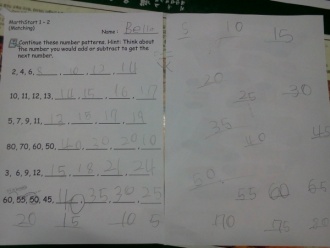 MathStart 1 - 2
(Matching)
Name :
Continue these number patterns. Hint: Think about
the number you would add or subtract to get the
next number.
2, 4, 6, 8, 10, 12, 14
10, 11, 12, 13, 14, 15, 16, 17
5, 7, 9, 11, 13, 15, 19
80, 70, 60, 50, 40, 30, 20, 10
3, 6, 9, 12, 15, 18, 21, 24
60, 55, 50, 45, 40, 35, 30, 25
20 15 10 5
5 10 15
20 25 30
35 40
50 55 60
70 75